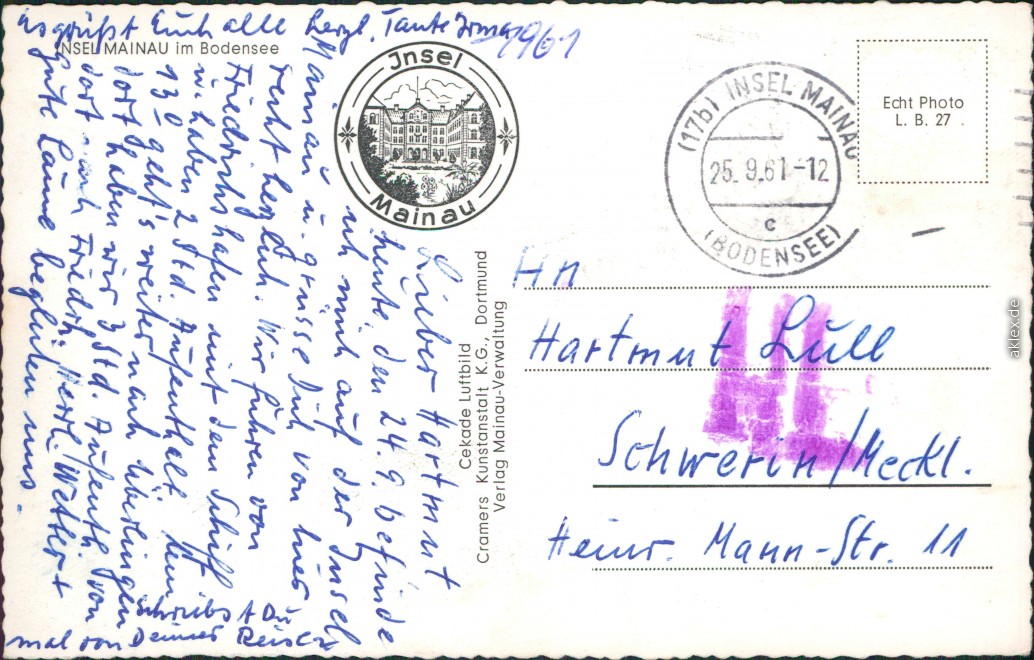 INSEL MAINAU im Bodensee
1961
Insel
Mainau
(17b) INSEL MAINAU
25.9.61-12
c
(BODENSEE)
Echt Photo
L. B. 27
Lieber Hartmut
heute den 24.9. befinde
ich mich auf der Insel
Mainau u. grüsse Dich von hier
recht herzlich. Wir fuhren von
Friedrichshafen mit dem Schiff
u. haben 2 Std. Aufenthalt hier
130 geht's weiter nach Überlingen
dort haben wir 3 Std. Aufenth. von
dort nach Friedrh. Herrl. Wetter +
gute Laune begleiten uns.
Es grüßt Euch alle herzl. Tante Irma
Schreibst Du
mal von Deiner Reise
Cekade Luftbild
Cramers Kunstanstalt K.G., Dortmund
Verlag Mainau-Verwaltung
Hn
Hartmut Lüll
Schwerin/Meckl.
Heinr. Mann-Str. 11
HL
aklex.de